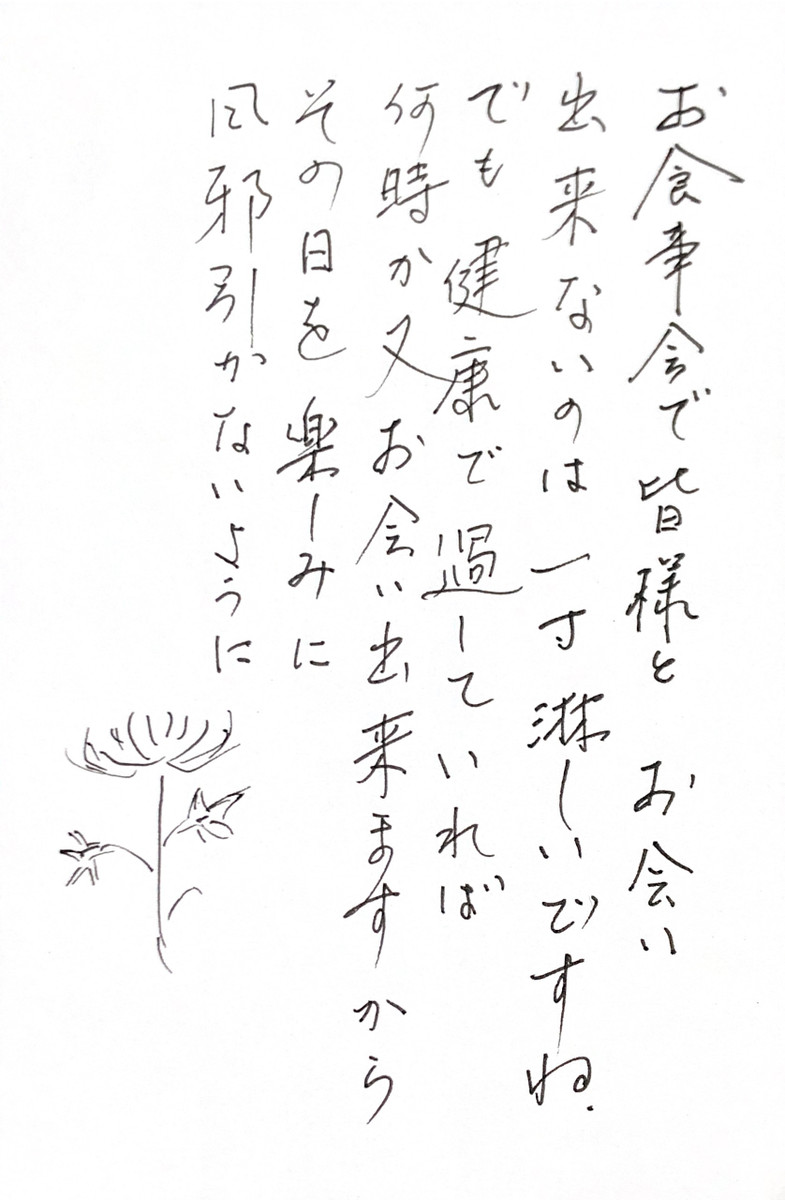 お食事会で皆様とお会い
出来ないのは一寸淋しいですね.
でも健康で過していれば
何時か又お会い出来ますから
その日を楽しみに
風邪引かないように